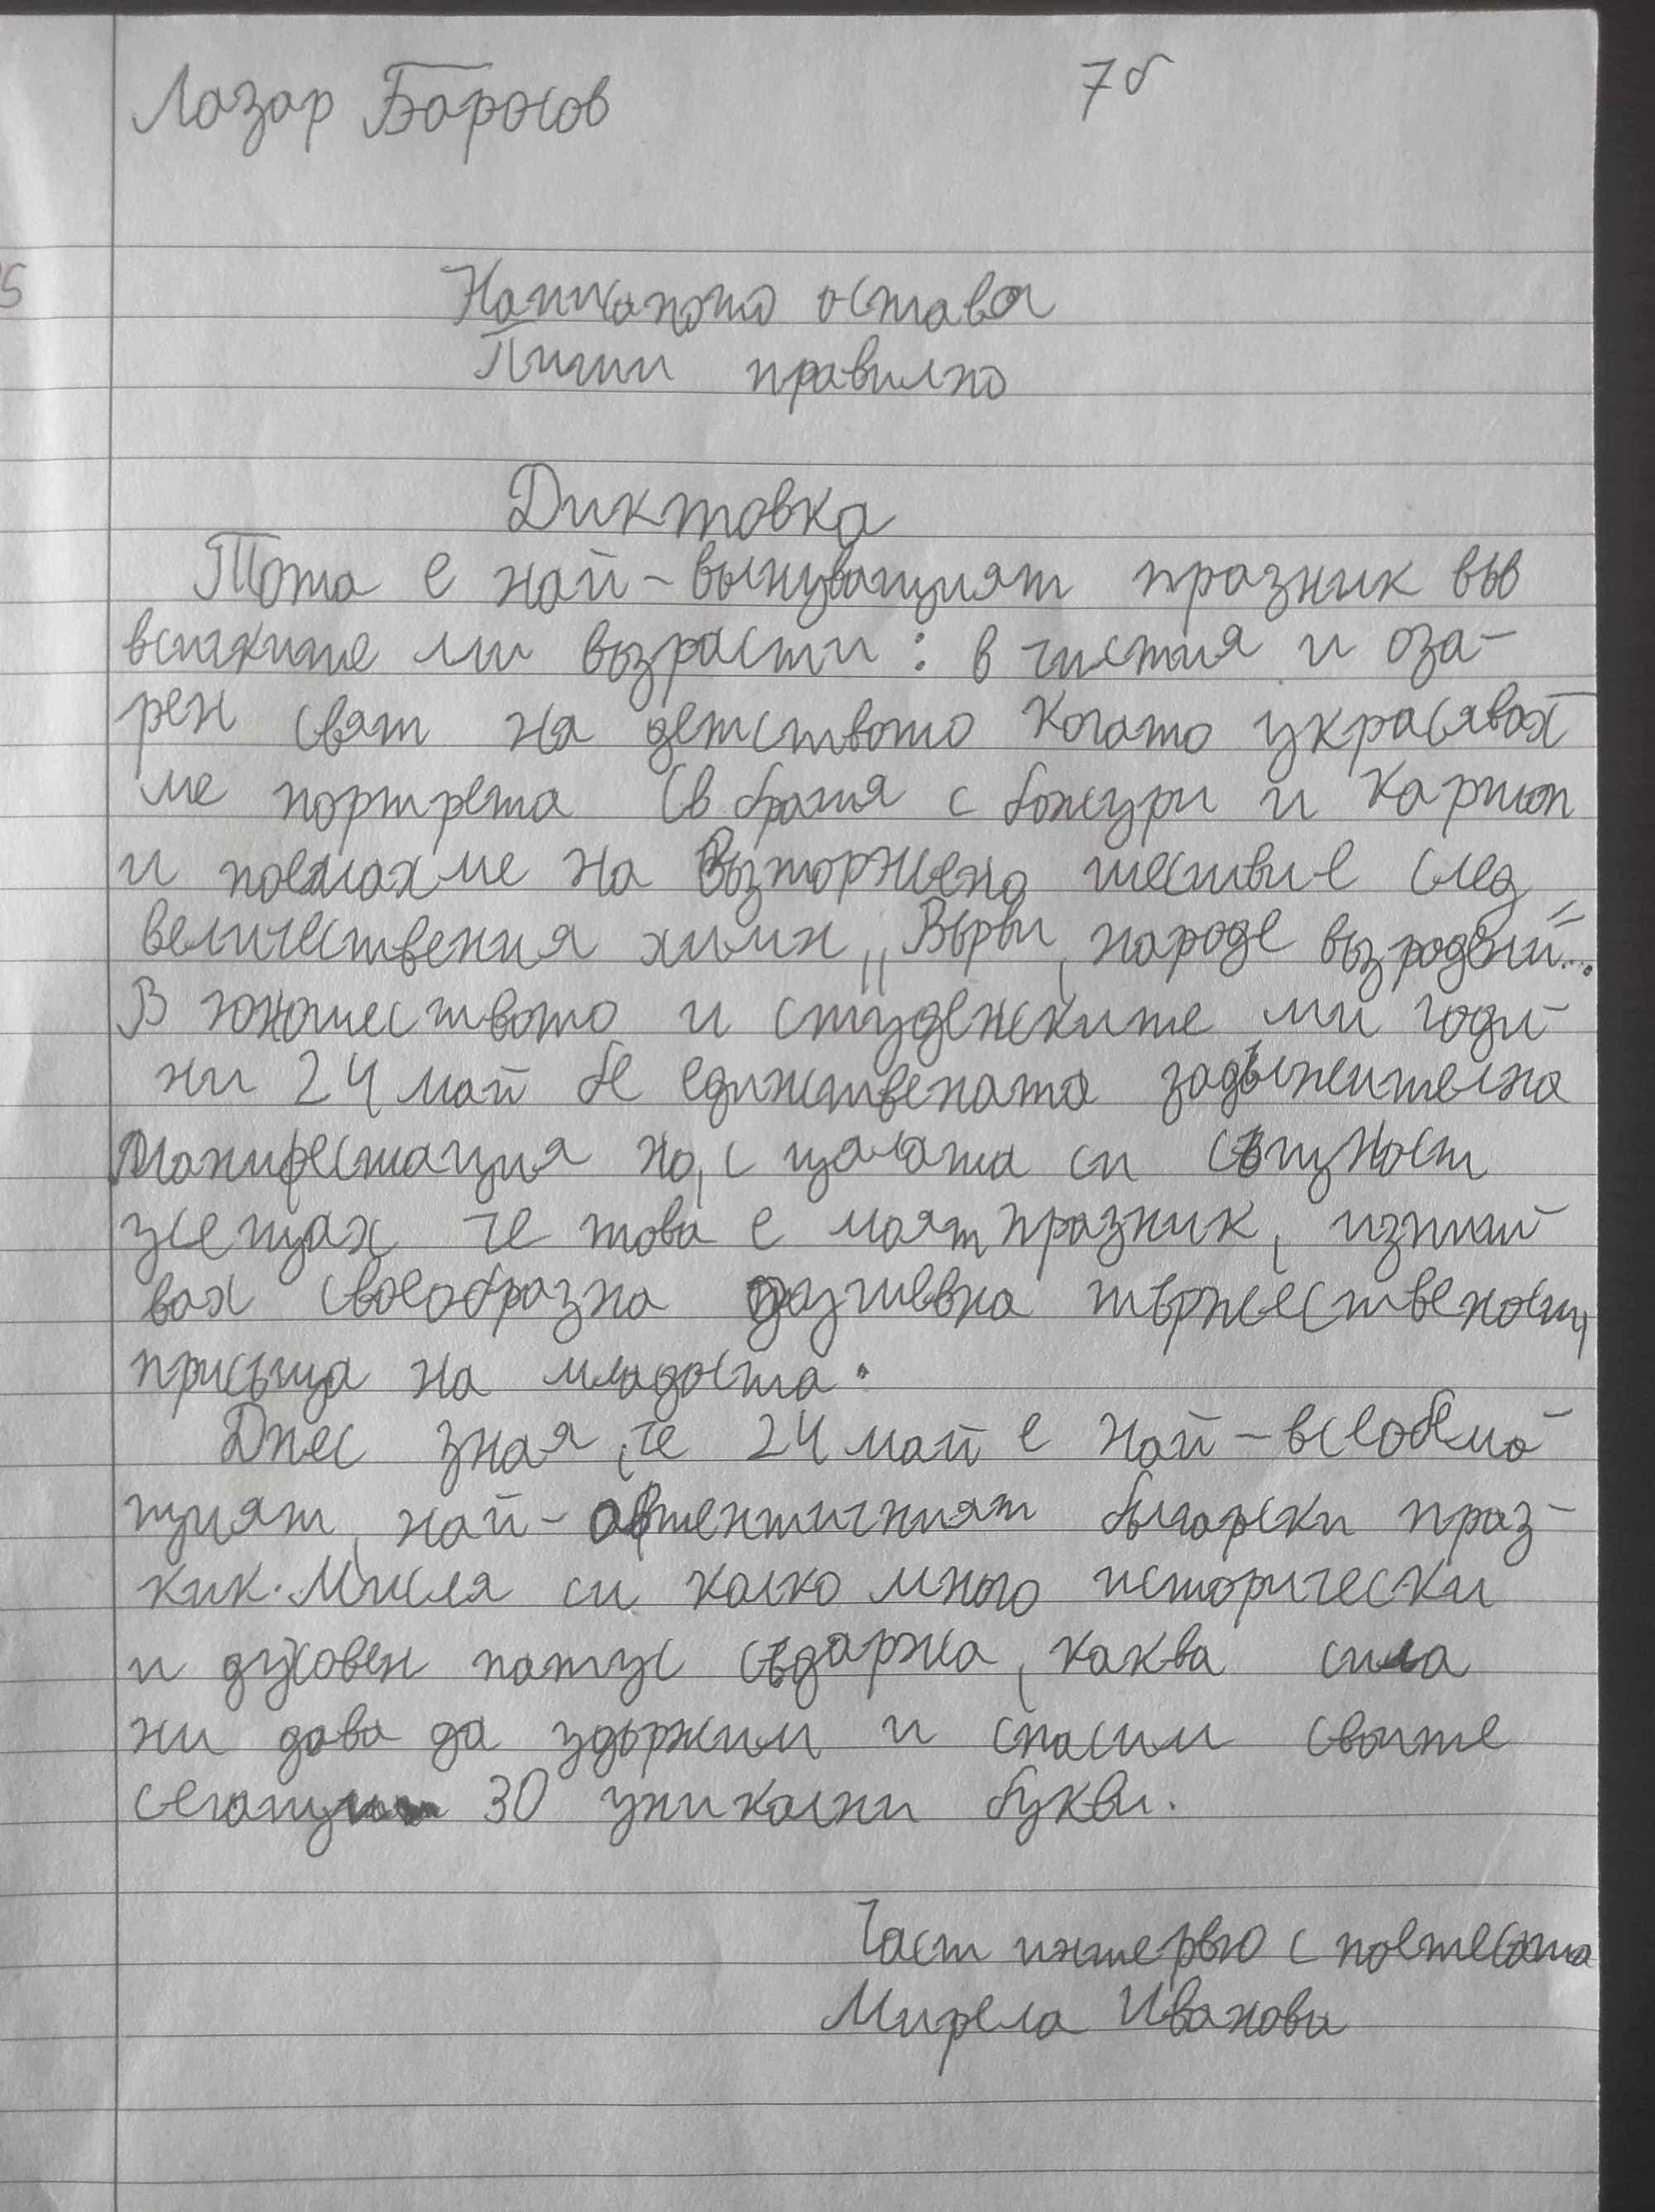 Лазар Барзов 7б
Написаното остава
Пиши правилно
Диктовка
Тота е най-вълнуващият празник във
всичките ми възрасти: в чистия и оза-
рен свят на детството когато украсявах
ме портрета Св братя с божури и картон
и поемахме на възторжено шествие след
величествения химн „Върви, народе възродени"...
В юношеството и студенските ми годи-
ни 24 май бе единствената задължителна
манифестация но, с цялата си същност
усещах че това е моят празник, изпит
вах своеобразна душевна тържественост,
присъща на младоста.
Днес зная, че 24 май е най-всеобемо
щият, най-автентичният български праз-
ник. Мисля си колко много исторически
и духовен патус съдаржа, каква сила
ни дава да здържим и спасим своите
сегашни 30 уникални букви.
Част интервю с поетесата
Мирела Иванови